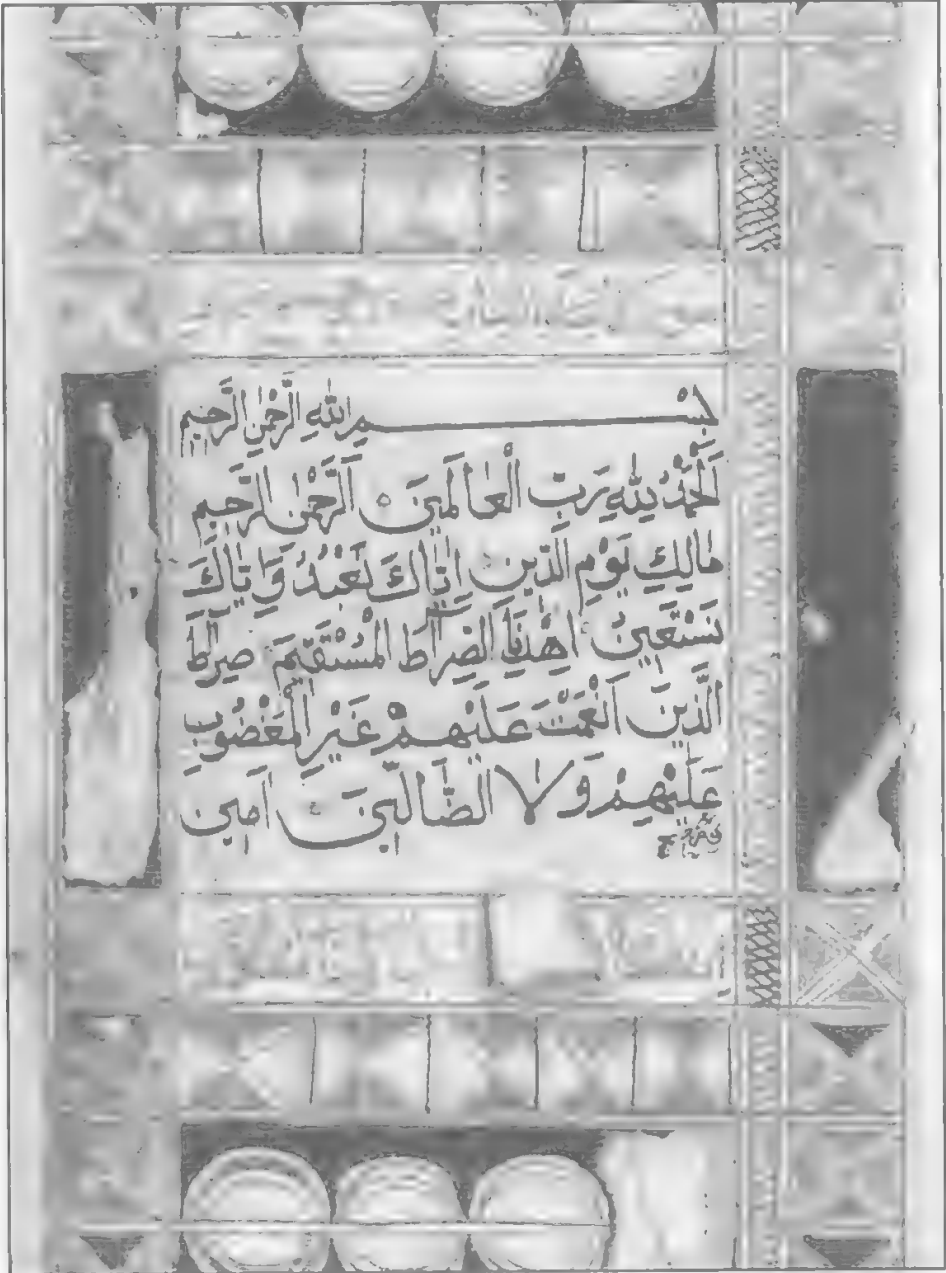 بِسْمِ اللهِ الرَّحْمٰنِ الرَّحِيمِ
اَلْحَمْدُ لِلّٰهِ رَبِّ الْعَالَمِينَ الرَّحْمٰنِ الرَّحِيمِ
مَالِكِ يَوْمِ الدِّينِ اِيَّاكَ نَعْبُدُ وَاِيَّاكَ
نَسْتَعِينُ اِهْدِنَا الصِّرَاطَ الْمُسْتَقِيمَ صِرَاطَ
الَّذِينَ اَنْعَمْتَ عَلَيْهِمْ غَيْرِ الْمَغْضُوبِ
عَلَيْهِمْ وَلَا الضَّالِّينَ اٰمِين